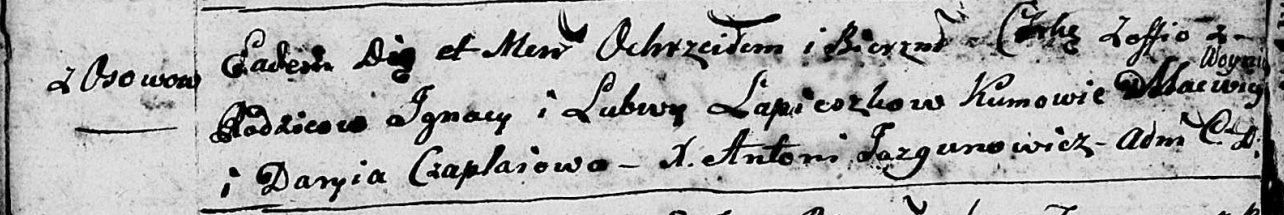 z Osowow
Eadem Die et Mens Ochrzciłem i Bierzm Corkę Zoffią z
Rodzicow Ignacy i Lubwy Łapieczkow Kumowie Maciey
i Daryia Czaplaiowa – X. Antoni Jazgunowicz – Adm C. D.